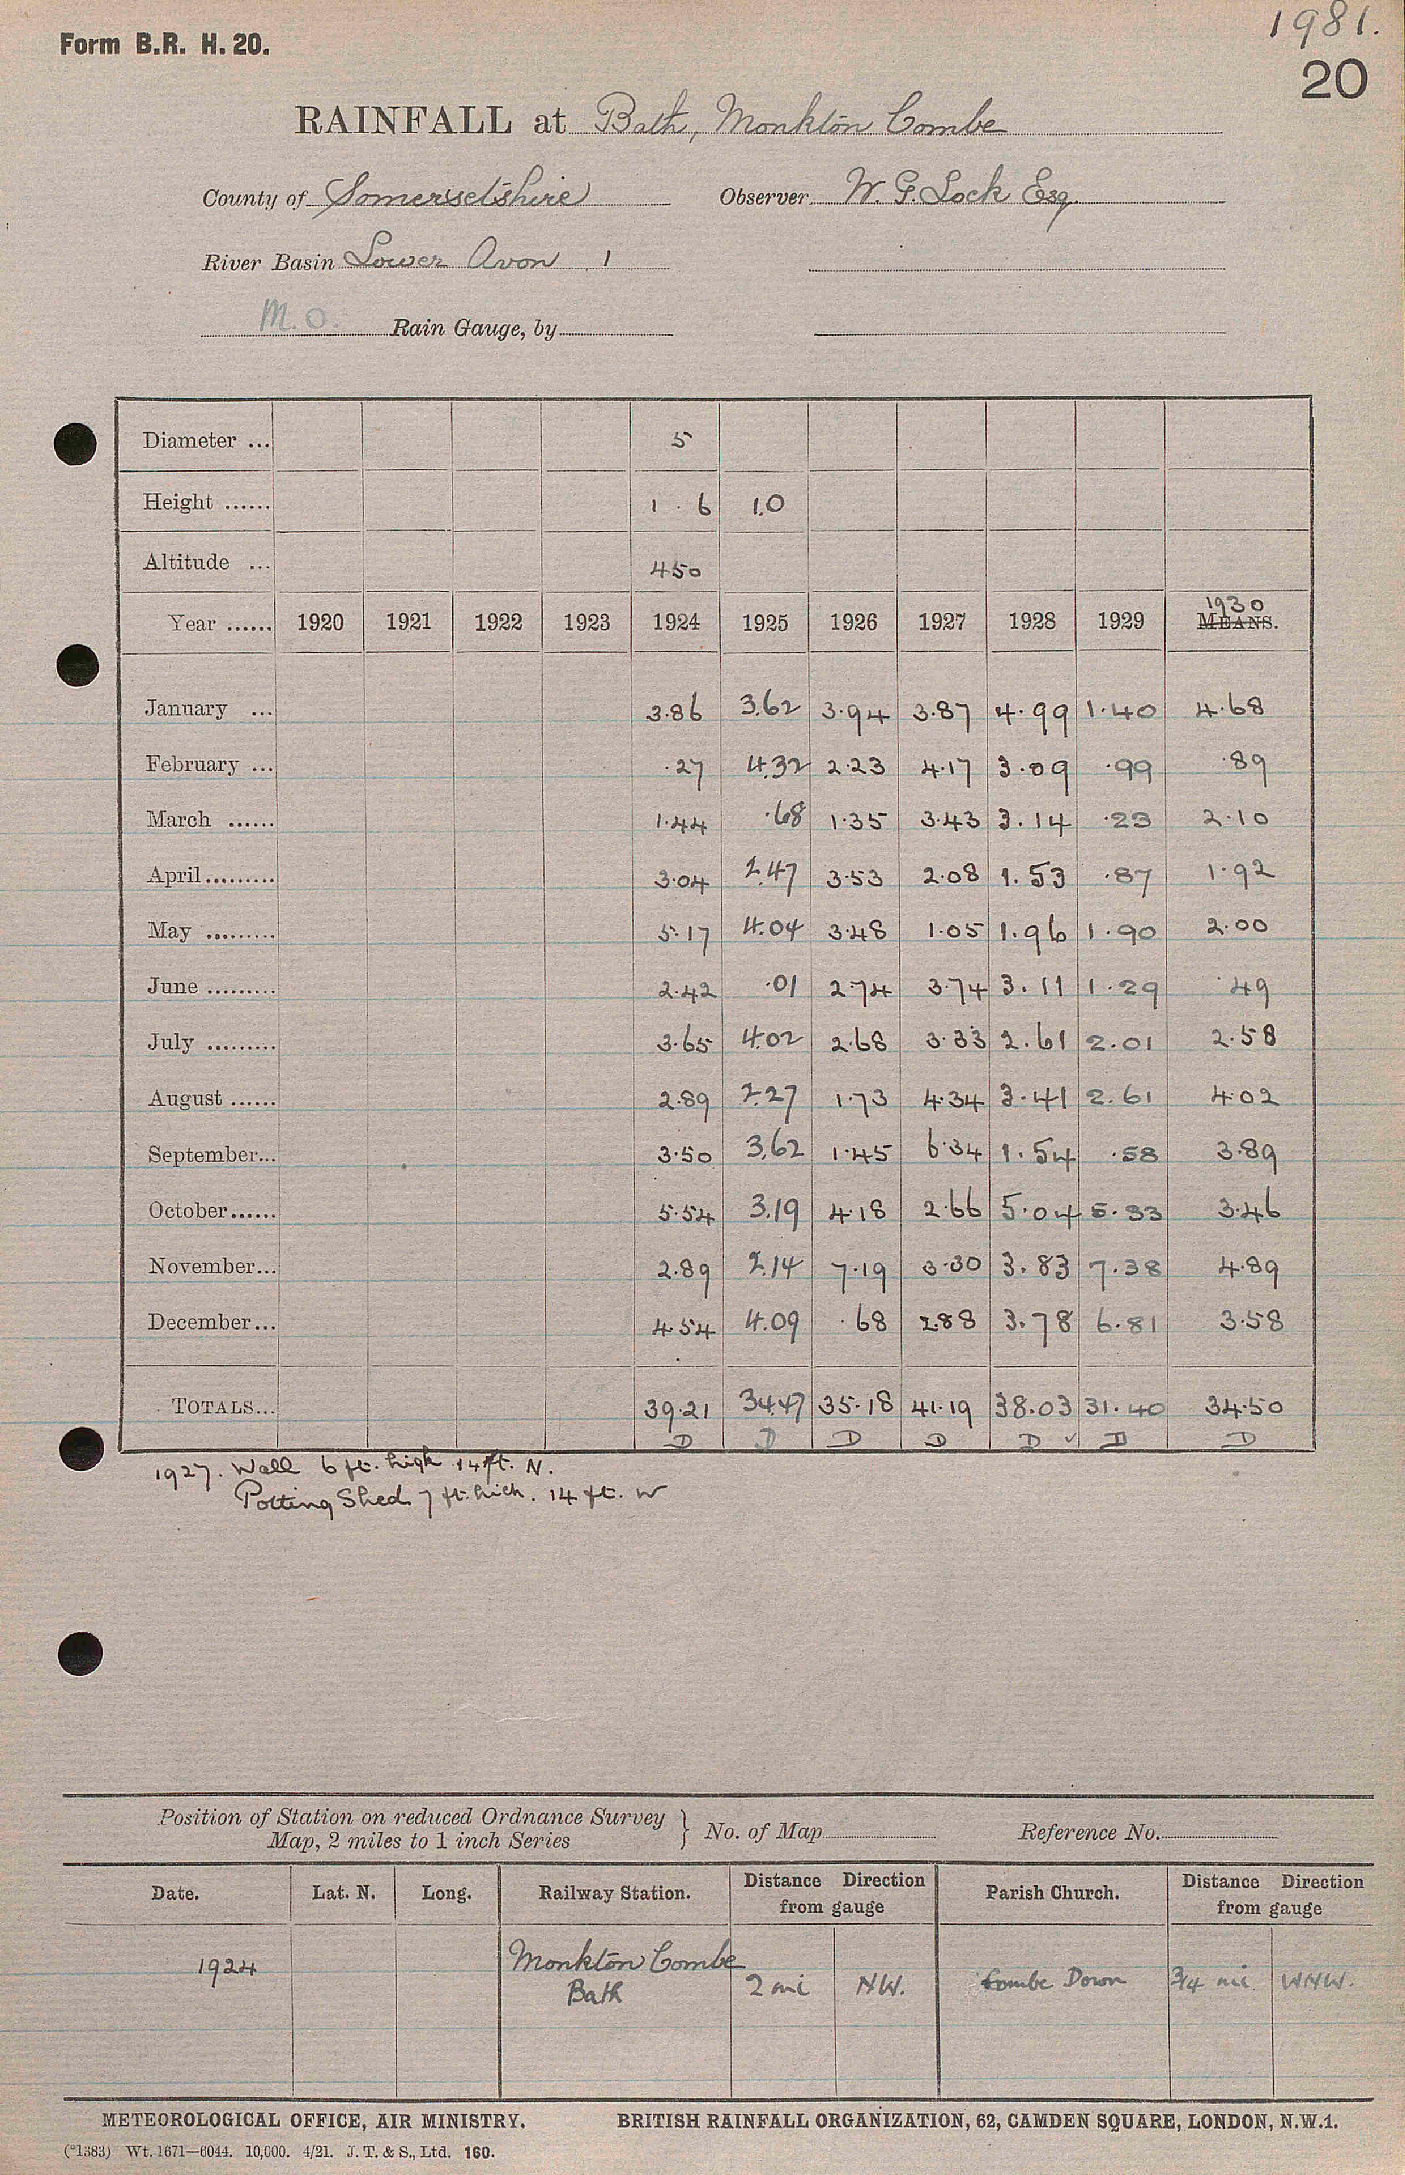 1981.
Form B.R. H. 20.
20
RAINFALL at Bath, Monkton Combe
County of Somersetshire Observer W. G. Lock Esq.
River Basin Lower Avon 1
M.O. Rain Gauge, by
Diameter ... 5
Height ...... 1 . 6 1.0
Altitude ... 450
1930
Year ...... 1920 1921 1922 1923 1924 1925 1926 1927 1928 1929 MEANS.
January ... 3.86 3.62 3.94 3.87 4.99 1.40 4.68
February ... .27 4.32 2.23 4.17 3.09 .99 .89
March ...... 1.44 .68 1.35 3.43 3.14 .23 2.10
April ......... 3.04 2.47 3.53 2.08 1.53 .87 1.92
May ......... 5.17 4.04 3.48 1.05 1.96 1.90 2.00
June ......... 2.42 .01 2.74 3.74 3.11 1.29 .49
July ......... 3.65 4.02 2.68 3.33 2.61 2.01 2.58
August ...... 2.89 2.27 1.73 4.34 3.41 2.61 4.02
September... 3.50 3.62 1.45 6.34 1.54 .58 3.89
October...... 5.54 3.19 4.18 2.66 5.04 5.33 3.46
November... 2.89 2.14 7.19 3.30 3.83 7.38 4.89
December... 4.54 4.09 .68 2.88 3.78 6.81 3.58
TOTALS... 39.21 34.47 35.18 41.19 38.03 31.40 34.50
D D D D D ✓ D D
1927. Wall 6 ft. high 14 ft. N.
Potting Shed 7 ft. high. 14 ft. W
Position of Station on reduced Ordnance Survey
Map, 2 miles to 1 inch Series } No. of Map Reference No.
Date. Lat. N. Long. Railway Station. Distance Direction from gauge Parish Church. Distance Direction from gauge
1924 Monkton Combe
Bath 2 mi NW. Combe Down 3/4 mi WNW.
METEOROLOGICAL OFFICE, AIR MINISTRY. BRITISH RAINFALL ORGANIZATION, 62, CAMDEN SQUARE, LONDON, N.W.1.
(*1383) Wt. 1671—6044. 10,000. 4/21. J. T. & S., Ltd. 160.